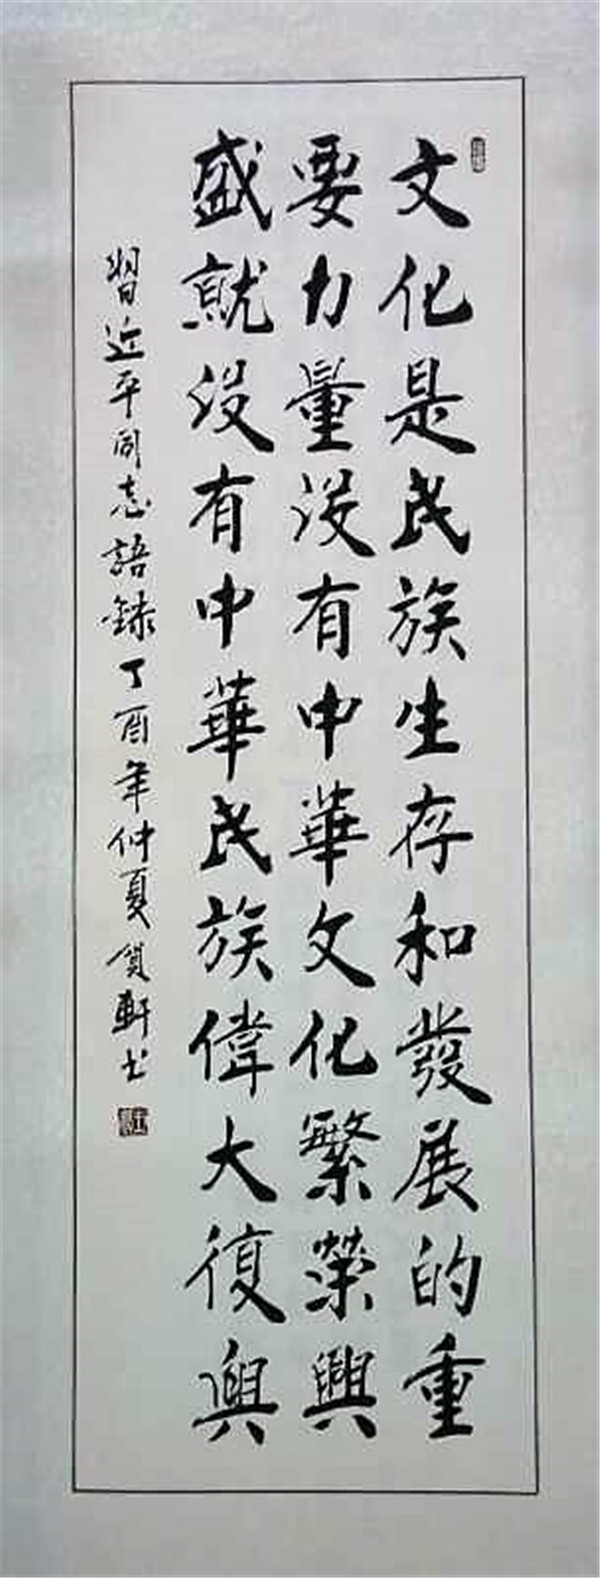 文化是民族生存和發展的重
要力量没有中華文化繁榮興
盛就没有中華民族偉大復興
習近平同志語録丁酉年仲夏贠軒书